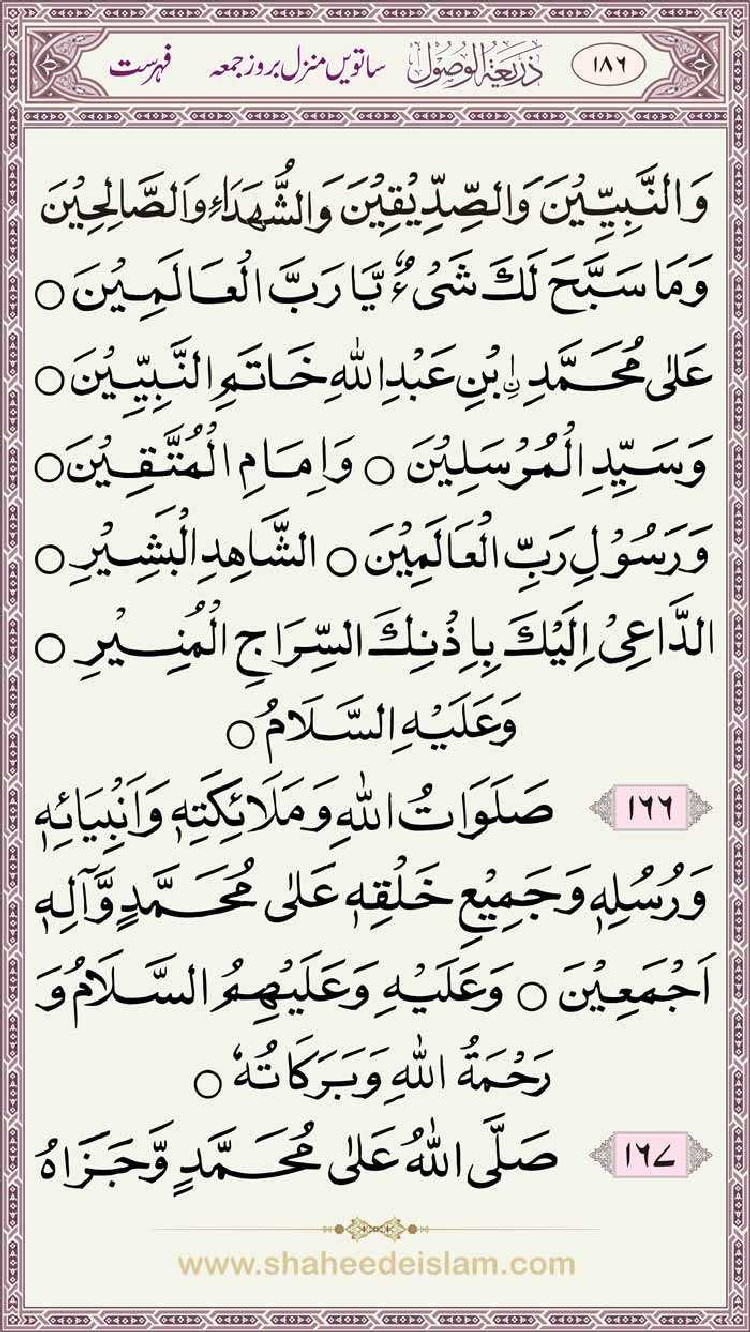 ۱۸۶ ذَرِیْعَۃُ الْوُصُوْل ساتویں منزل بروز جمعہ فہرست
وَالنَّبِيِّيْنَ وَالصِّدِّيْقِيْنَ وَالشُّهَدَاءِ وَالصَّالِحِيْنَ
وَمَا سَبَّحَ لَكَ شَيْءٌ يَّا رَبَّ الْعَالَمِيْنَ ○
عَلٰى مُحَمَّدِ ۨابْنِ عَبْدِ اللّٰهِ خَاتَمِ النَّبِيِّيْنَ ○
وَسَيِّدِ الْمُرْسَلِيْنَ ○ وَاِمَامِ الْمُتَّقِيْنَ ○
وَرَسُوْلِ رَبِّ الْعَالَمِيْنَ ○ الشَّاهِدِ الْبَشِيْرِ ○
الدَّاعِيْ اِلَيْكَ بِاِذْنِكَ السِّرَاجِ الْمُنِيْرِ ○
وَعَلَيْهِ السَّلَامُ ○
۱۶۶ صَلَوَاتُ اللّٰهِ وَمَلَائِكَتِهٖ وَاَنْبِيَائِهٖ
وَرُسُلِهٖ وَجَمِيْعِ خَلْقِهٖ عَلٰى مُحَمَّدٍ وَّآلِهٖ
اَجْمَعِيْنَ ○ وَعَلَيْهِ وَعَلَيْهِمُ السَّلَامُ وَ
رَحْمَةُ اللّٰهِ وَبَرَكَاتُهٗ ○
۱۶۷ صَلَّى اللّٰهُ عَلٰى مُحَمَّدٍ وَّجَزَاهُ
www.shaheedeislam.com